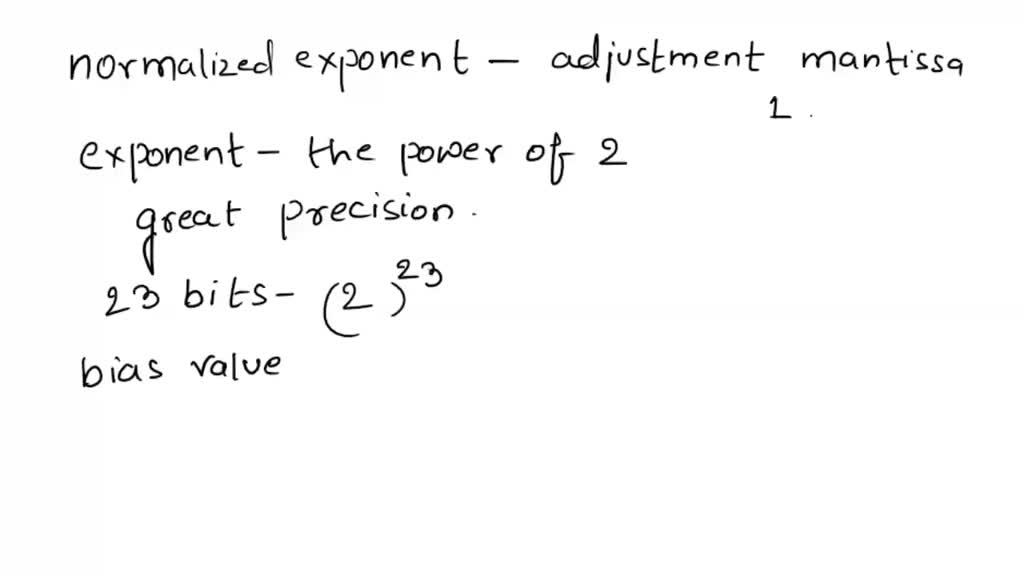 normalized exponent - adjustment mantissa
1.
exponent - the power of 2
great precision.
23 bits - (2)^23
bias value